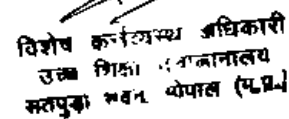 विशेष कर्त्तव्यस्थ अधिकारी
उच्च शिक्षा संचालनालय
सतपुड़ा भवन, भोपाल (म.प्र.)